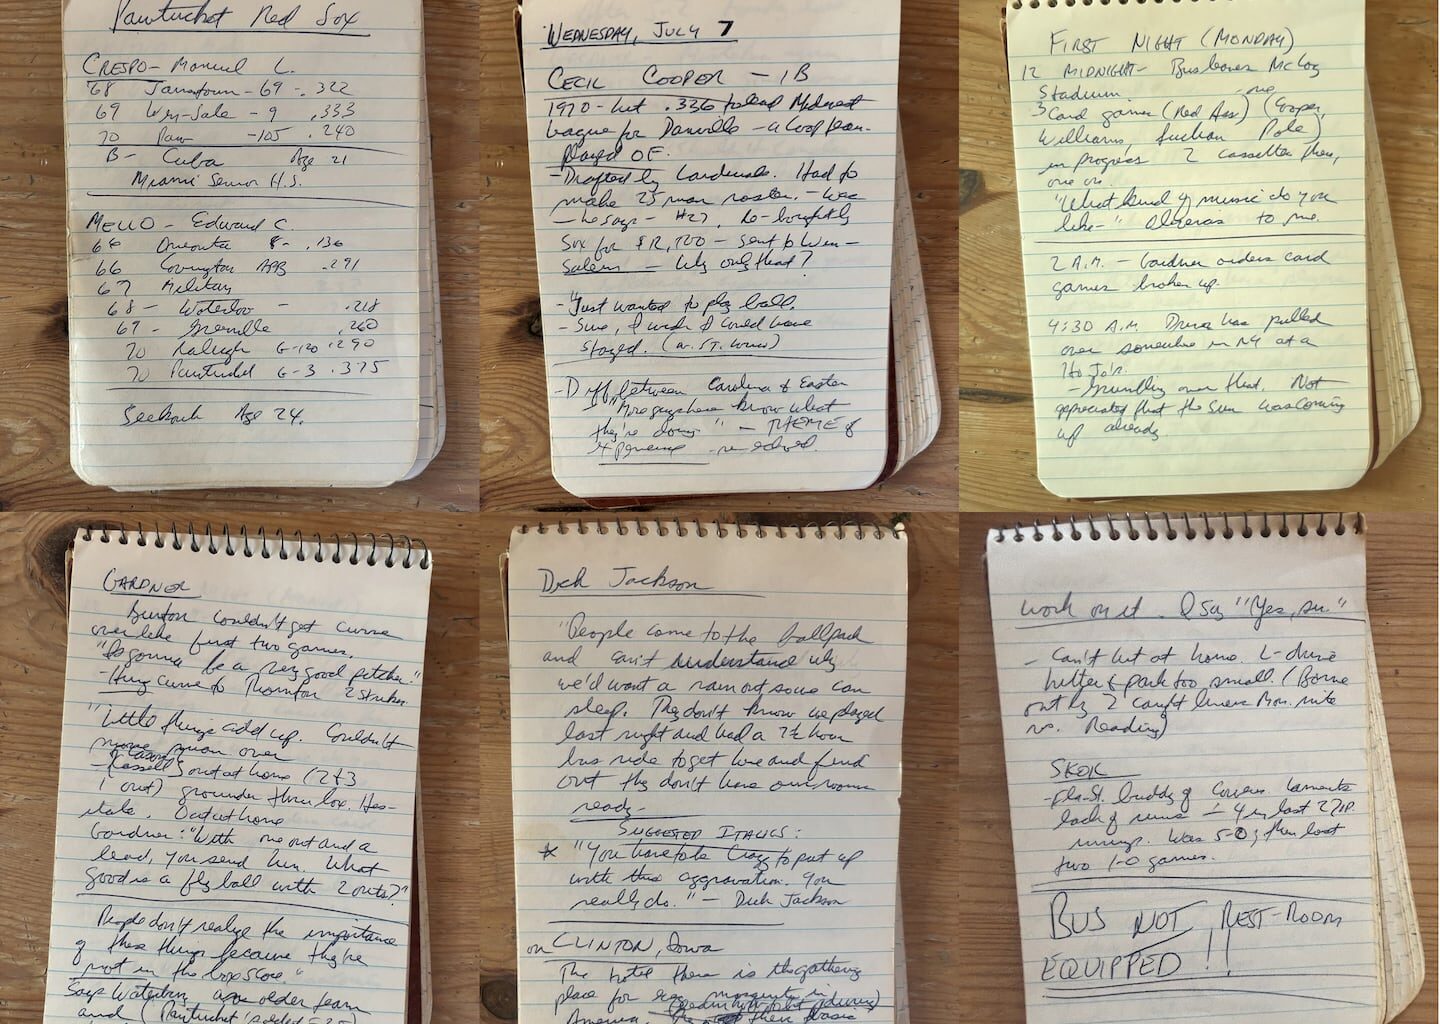 Pawtucket Red Sox
CRESPO - Manuel L.
'68 Jamestown - 69 - .322
69 Win-Salem - 9 .333
70 Paw -105 .240
B- Cuba Age 21
Miami Senior H.S.
MELLO - Edward C.
66 Oneonta 8- .136
66 Covington APP .291
67 Military
68 - Waterloo - .218
69 - Greenville .260
70 Raleigh G-120 .290
70 Pawtucket G-3 .375
Seekonk Age 24.
WEDNESDAY, JULY 7
CECIL COOPER - 1B
1970 - hit .336 to lead Midwest
League for Danville - a Coop team.
Played OF.
- Drafted by Cardinals. Had to
make 25 man roster. - Was
- he says - #27. Re-bought by
Sox for $12,500 - sent to Win-
Salem - Why only that?
- "Just wanted to play ball.
- Sure, I wish I could have
stayed. (w. ST. Louis)
- Diff between Carolina & Eastern
- "More guys here know what
they're doing" - THEME of
experience - re-echoed.
FIRST NIGHT (MONDAY)
12 MIDNIGHT - Bus leaves McCoy
Stadium
3 Card games (Red Ass) (Cooper,
Williams, Pole)
in progress 2 cassettes then,
one on.
"What kind of music do you
like -" to me.
2 A.M. - Gardner orders card
games broken up.
4:30 A.M. Driver has pulled
over somewhere in NY at a
HoJo's.
- Grumbling over that. Not
appreciated that the sun was coming
up already.
GARDNER
Burton couldn't get curve
over like first two games.
"He's gonna be a very good pitcher."
- Hung curve to Thornton 2 strikes.
"Little things add up. Couldn't
move man over
- Kassell out at home (2 & 3
1 out) grounder thru box. Hes-
itate. Out at home
Gardner: "With one out and a
lead, you send him. What
good is a fly ball with 2 outs?"
People don't realize the importance
of these things because they're
not in the box score."
Says Waterbury an older team
and (Pawtucket added
Dick Jackson
"People come to the ballpark
and can't understand why
we'd want a rainout so we can
sleep. They don't know we played
last night and had a 7½ hour
bus ride to get here and find
out they don't have our rooms
ready -
SUGGESTED ITALICS:
* "You have to be Crazy to put up
with this aggravation. You
really do." - Dick Jackson
on CLINTON, Iowa
The hotel there is the gathering
place for mosquito in
America,
work on it. I say "Yes, sir."
- Can't hit at home. L-drive
hitter & park too small. (Borne
out by 2 caught liners Mon. nite
vs. Reading)
SKOK
- Fla-St. buddy of Cowens. Laments
lack of runs - 4 in last 27 I.P.
innings. Was 5-0; then lost
two 1-0 games.
BUS NOT REST-ROOM
EQUIPPED!!